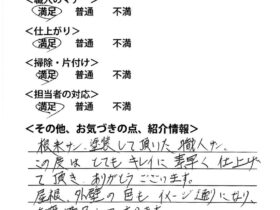 <職人のマナー>
満足 普通 不満
<仕上がり>
満足 普通 不満
<掃除・片付け>
満足 普通 不満
<担当者の対応>
満足 普通 不満
<その他、お気づきの点、紹介情報>
根本サン、塗装して頂いた職人サン
この度は とても キレイに 素早く 仕上げ
て頂き、ありがとうございます。
屋根、外壁の色も イメージ通りになり、